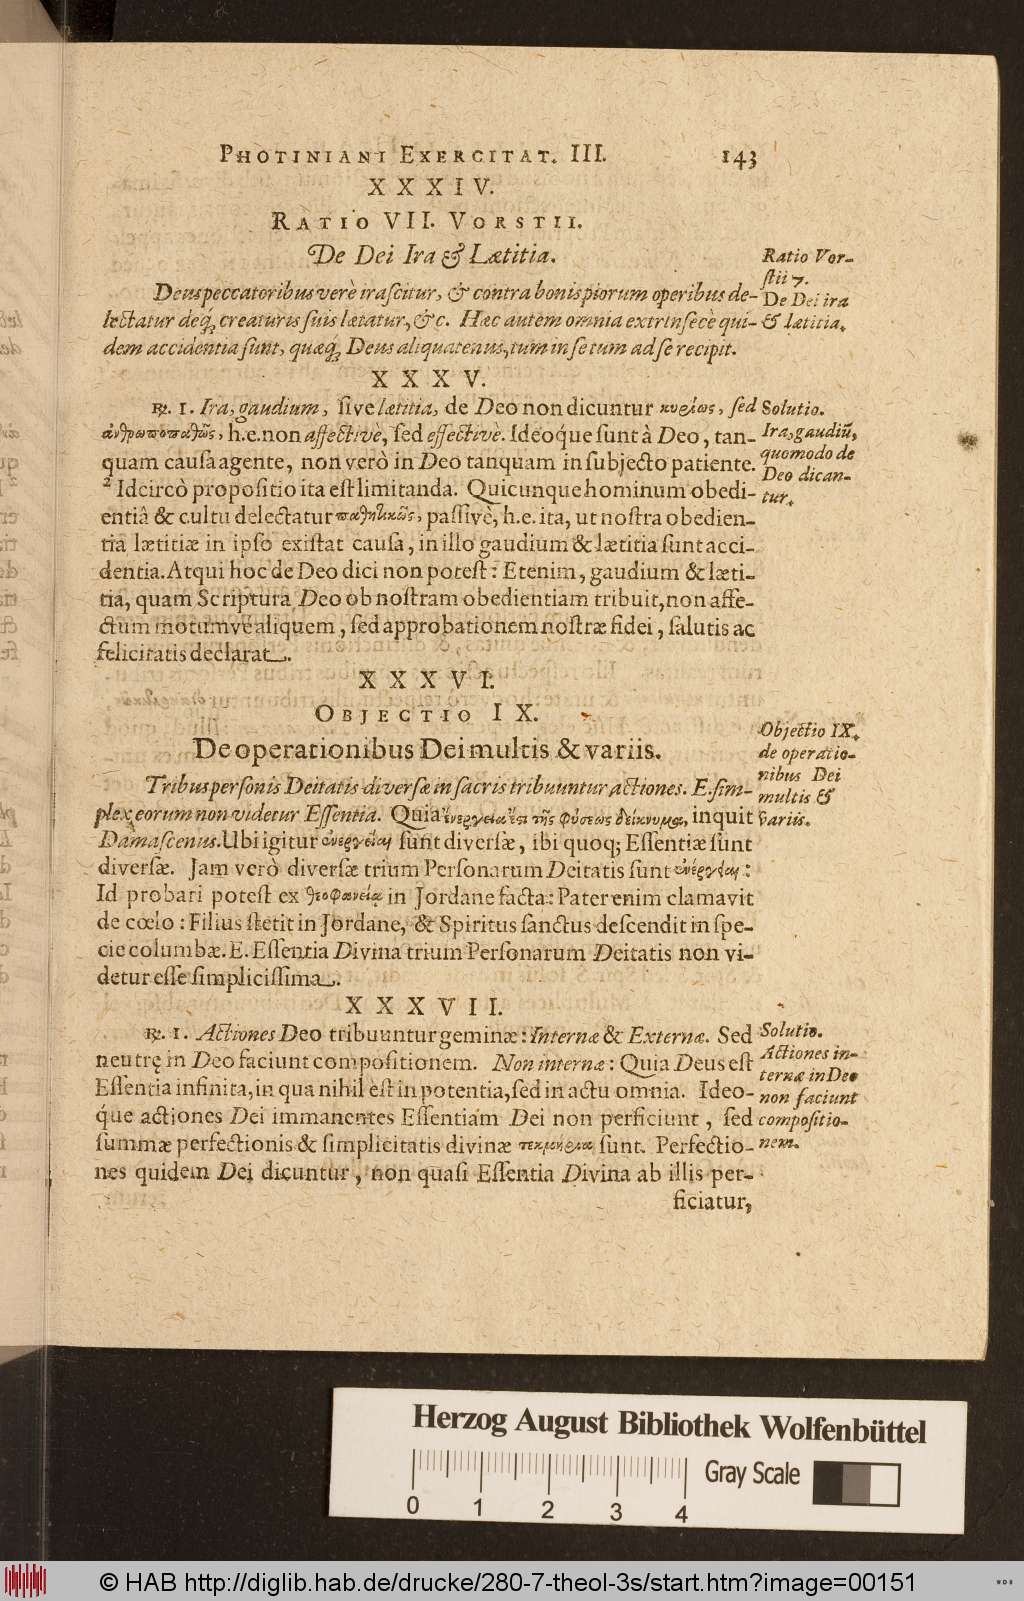 PHOTINIANI EXERCITAT. III. 143
XXXIV.
RATIO VII. VORSTII.
De Dei Ira & Lætitia.
Deus peccatoribus verè irascitur, & contra bonis piorum operibus de-
lectatur deq́; creaturis suis lætatur, &c. Hæc autem omnia extrinsecè qui-
dem accidentia sunt, quæq́; Deus aliquatenus, tum in se tum ad se recipit.
Ratio Vor-
stii 7.
De Dei ira
& lætitia.
XXXV.
℞. 1. Ira, gaudium, sive lætitia, de Deo non dicuntur κυρίως, sed
ἀνθρωποπαθῶς, h.e. non affectivè, sed effectivè. Ideoq́ue sunt à Deo, tan-
quam causa agente, non verò in Deo tanquam in subjecto patiente.
2 Idcircò propositio ita est limitanda. Quicunque hominum obedi-
entiâ & cultu delectatur παθητικῶς, passivè, h.e. ita, ut nostra obedien-
tia lætitiæ in ipso existat causa, in illo gaudium & lætitia sunt acci-
dentia. Atqui hoc de Deo dici non potest: Etenim, gaudium & læti-
tia, quam Scriptura Deo ob nostram obedientiam tribuit, non affe-
ctum motumve aliquem, sed approbationem nostræ fidei, salutis ac
felicitatis declarat.
Solutio.
Ira, gaudiũ,
quomodo de
Deo dican-
tur.
XXXVI.
OBJECTIO IX.
De operationibus Dei multis & variis.
Tribus personis Deitatis diversæ in sacris tribuuntur actiones. E. sim-
plex eorum non videtur Essentia. Quia ἐνέργεια ἐπὶ τῆς φύσεως δείκνυμαι, inquit
Damascenus. Ubi igitur ἐνέργειαι sunt diversæ, ibi quoq; Essentiæ sunt
diversæ. Jam verò diversæ trium Personarum Deitatis sunt ἐνέργειαι:
Id probari potest ex θεοφανείᾳ in Jordane facta: Pater enim clamavit
de cœlo: Filius stetit in Jordane, & Spiritus sanctus descendit in spe-
cie columbæ. E. Essentia Divina trium Personarum Deitatis non vi-
detur esse simplicissima.
Objectio IX.
de operatio-
nibus Dei
multis &
variis.
XXXVII.
℞. 1. Actiones Deo tribuuntur geminæ: Internæ & Externæ. Sed
neutrę in Deo faciunt compositionem. Non internæ: Quia Deus est
Essentia infinita, in qua nihil est in potentia, sed in actu omnia. Ideo-
q́ue actiones Dei immanentes Essentiam Dei non perficiunt, sed
summæ perfectionis & simplicitatis divinæ τεκμήρια sunt. Perfectio-
nes quidem Dei dicuntur, non quasi Essentia Divina ab illis per-
ficiatur,
Solutio.
Actiones in-
ternæ in Deo
non faciunt
compositio-
nem.
Herzog August Bibliothek Wolfenbüttel
Gray Scale
0 1 2 3 4
© HAB http://diglib.hab.de/drucke/280-7-theol-3s/start.htm?image=00151